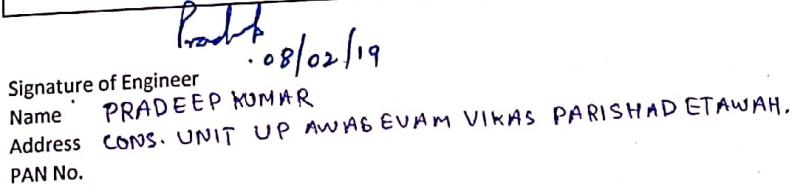 Pradeep
08/02/19
Signature of Engineer
Name PRADEEP KUMAR
Address CONS. UNIT UP AWAS EVAM VIKAS PARISHAD ETAWAH.
PAN No.